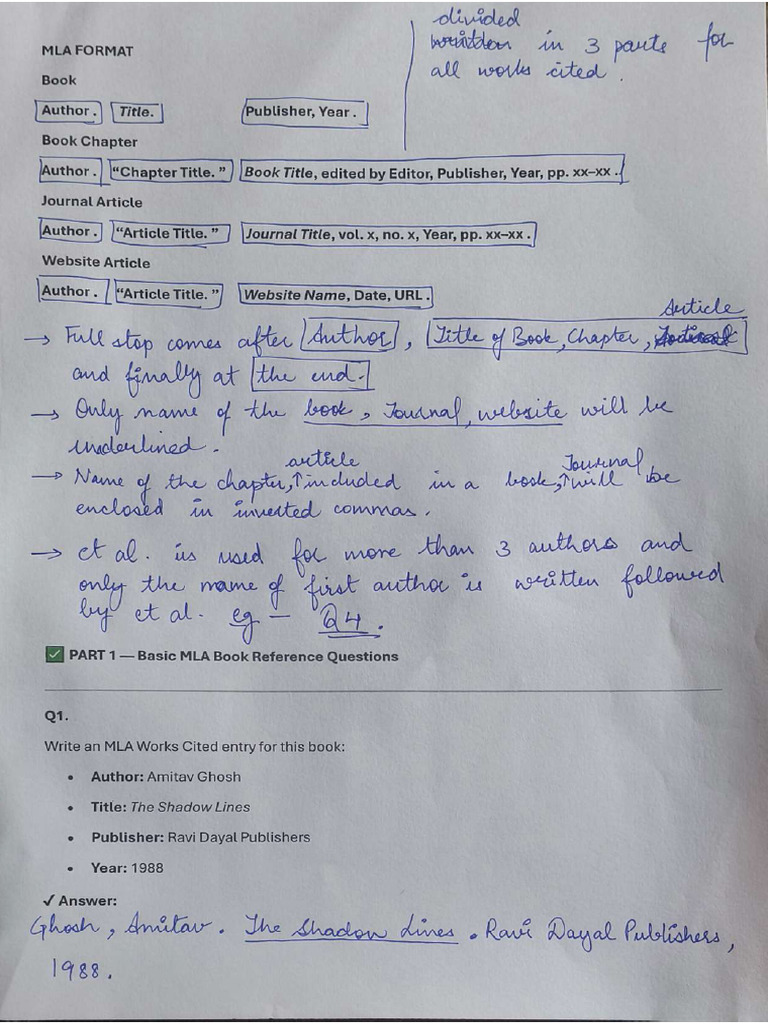 divided
written in 3 parts for
all works cited.
MLA FORMAT
Book
Author. Title. Publisher, Year.
Book Chapter
Author. “Chapter Title.” Book Title, edited by Editor, Publisher, Year, pp. xx–xx.
Journal Article
Author. “Article Title.” Journal Title, vol. x, no. x, Year, pp. xx–xx.
Website Article
Author. “Article Title.” Website Name, Date, URL.
Article
→ Full stop comes after Author, Title of Book, Chapter,
and finally at the end.
→ Only name of the book, Journal, website will be
underlined.
article Journal
→ Name of the chapter, ↑included in a book, ↑will be
enclosed in inverted commas.
→ et al. is used for more than 3 authors and
only the name of first author is written followed
by et al. eg — Q4.
✅ PART 1 — Basic MLA Book Reference Questions
Q1.
Write an MLA Works Cited entry for this book:
• Author: Amitav Ghosh
• Title: The Shadow Lines
• Publisher: Ravi Dayal Publishers
• Year: 1988
✓ Answer:
Ghosh, Amitav. The Shadow Lines. Ravi Dayal Publishers,
1988.